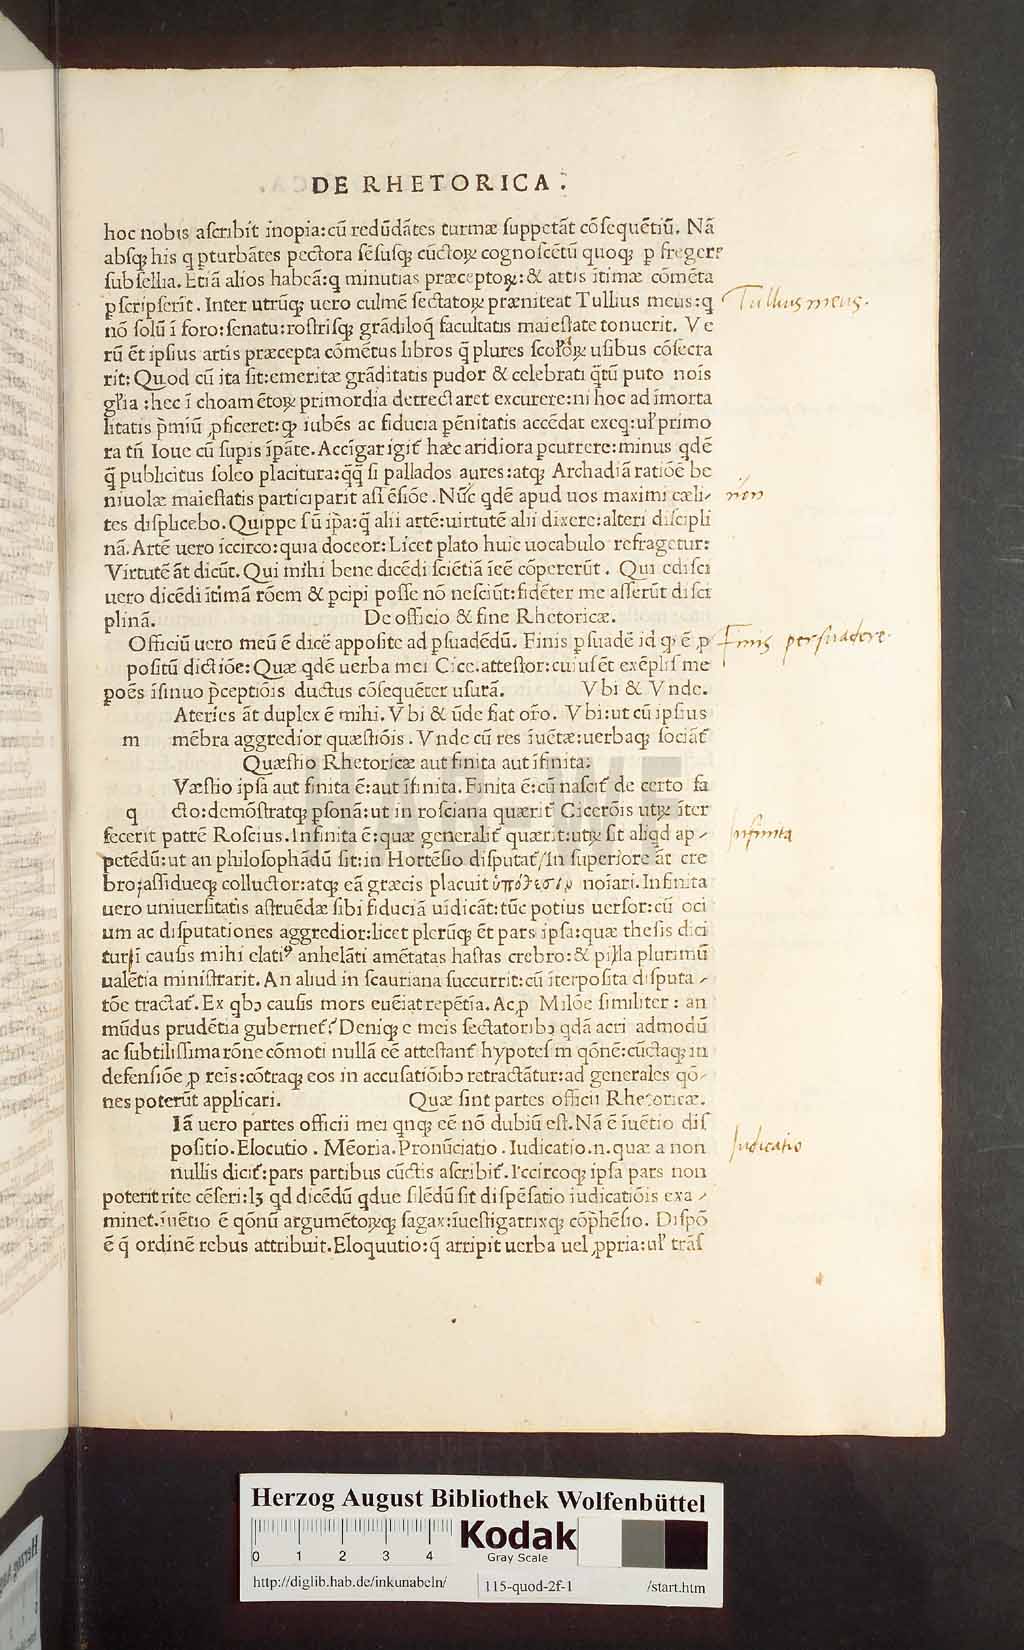 DE RHETORICA.
hoc nobis aſcribit inopia:cū redūdātes turmæ ſuppetāt cōſequētiū. Nā
abſqꝫ his q pturbātes pectora ſēſuſqꝫ cūctoꝝ cognoſcētū quoqꝫ ꝑ fregere
ſubſellia. Etiā alios habeā:q minutias præceptoꝝ:& artis ītimæ cōmēta
ꝑſcripſerūt. Inter utrūqꝫ uero culmē ſectatoꝝ præniteat Tullius meus:q
nō ſolū ī foro:ſenatu:roſtriſqꝫ grādiloq̄ facultatis maieſtate tonuerit. Ve
rū ēt ipſius artis præcepta cōmētus libros q̄ plures ſcoloꝝ uſibus cōſecra
rit: Quod cū ita ſit:emeritæ grāditatis pudor & celebrati q̄tū puto nois
gľia :hec ī choamētoꝝ primordia detrectaret excurere:ni hoc ad īmorta
litatis p̄miū ꝓficeret:qꝫ iubēs ac fiducia pēnitatis accēdat exeq:uľ primo
ra tn̄ Ioue cū ſupis īpāte. Accīgar igit̄ hæc aridiora ꝑcurrere:minus qdē
q̄ publicitus ſoleo placitura:q̄q̄ ſi pallados aures:atqꝫ Archadiā ratiōē be
niuolæ maieſtatis participarit aſtēſiōe. Nūc qdē apud uos maximi cæli-
tes diſplicebo. Quippe ſū ip̄a:q̄ alii artē:uirtutē alii dixere:alteri diſcipli
nā. Artē uero iccirco:quia doceor: Licet plato huic uocabulo refragetur:
Virtutē āt dicūt. Qui mihi bene dicēdi ſciētiā īeē cōpererūt. Qui ediſci
uero dicēdi ītimā rōem & ꝑcipi poſſe nō neſciūt:fidēter me aſſerūt diſci
plinā. De officio & fine Rhetoricæ.
Officiū uero meū ē dicē appoſite ad pſuadēdū. Finis pſuadē id qꝫ ē ꝓ
poſitū dictiōe: Quæ qdē uerba mei Cice.atteſtor:cuiuſēt exēpliſ me
poēs īſinuo p̄ceptiōis ductus cōſequēter uſurā. Vbi & Vnde.
Ateries āt duplex ē mihi. Vbi & ūde fiat oro. Vbi:ut cū ipſius
m mēbra aggredior quæſtiōis. Vnde cū res īuētæ:uerbaqꝫ ſociāt̄
Quæſtio Rhetoricæ aut finita aut īfinita:
Væſtio ipſa aut finita ē:aut īfinita. Finita ē:cū naſcit̄ de certo fa
q cto:demōſtratqꝫ pſonā:ut in roſciana quærit̄ Cicerōis utꝝ īter
fecerit patrē Roſcius. Infinita ē:quæ generalit̄ quærit:utꝝ ſit aliqd ap-
petēdū:ut an philoſophādū ſit:in Hortēſio diſputat̄/In ſuperiore āt cre
bro;aſſidueqꝫ colluctor:atqꝫ eā græcis placuit ὑπόθεσιν noīari. Infinita
uero uniuerſitatis aſtruēdæ ſibi fiduciā uīdicāt:tūc potius uerſor:cū oci
um ac diſputationes aggredior:licet plerūqꝫ ēt pars ipſa:quæ theſis dici
tur/ī cauſis mihi elati⁹ anhelāti amētatas haſtas crebro:& pilla plurimū
ualētia miniſtrarit. An aliud in ſcauriana ſuccurrit:cū īterpoſita diſputa-
tōe tractat̄. Ex qbꝰ cauſis mors euēiat repētīa. Ac ꝓ Milōe ſimiliter : an
mūdus prudētia gubernet̄? Deniqꝫ e meis ſectatoribꝰ qdā acri admodū
ac ſubtiliſſima rōne cōmoti nullā eē atteſtant̄ hypoteſim qōnē:cūctaqꝫ in
defenſiōe ꝓ reīs:cōtraqꝫ eos in accuſatiōibꝰ retractātur:ad generales qō-
nes poterūt applicari. Quæ ſint partes officii Rhetoricæ.
Iā uero partes officii mei qnqꝫ eē nō dubiū eſt. Nā ē īuētio diſ
poſitio. Elocutio. Mēoria. Pronūciatio. Iudicatio.n.quæ a non
nullis dicit̄:pars partibus cūctis aſcribit̄. Iccircoqꝫ ipſa pars non
poterit rite cēſeri:lꝫ qd dicēdū qdue ſilēdū ſit diſpēſatio iudicatiōis exa-
minet.īuētio ē qōnū argumētoꝝqꝫ ſagax:īueſtigatrixqꝫ cōp̄heſio. Diſpō
ē q̄ ordinē rebus attribuit. Eloquutio:q̄ arripit uerba uel ꝓpria:uľ trāſ
Tullius meus.
non
Finis persuadere.
Infinita
Iudicatio
Herzog August Bibliothek Wolfenbüttel
0 1 2 3 4
Kodak
Gray Scale
http://diglib.hab.de/inkunabeln/ 115-quod-2f-1 /start.htm
HAB-WF